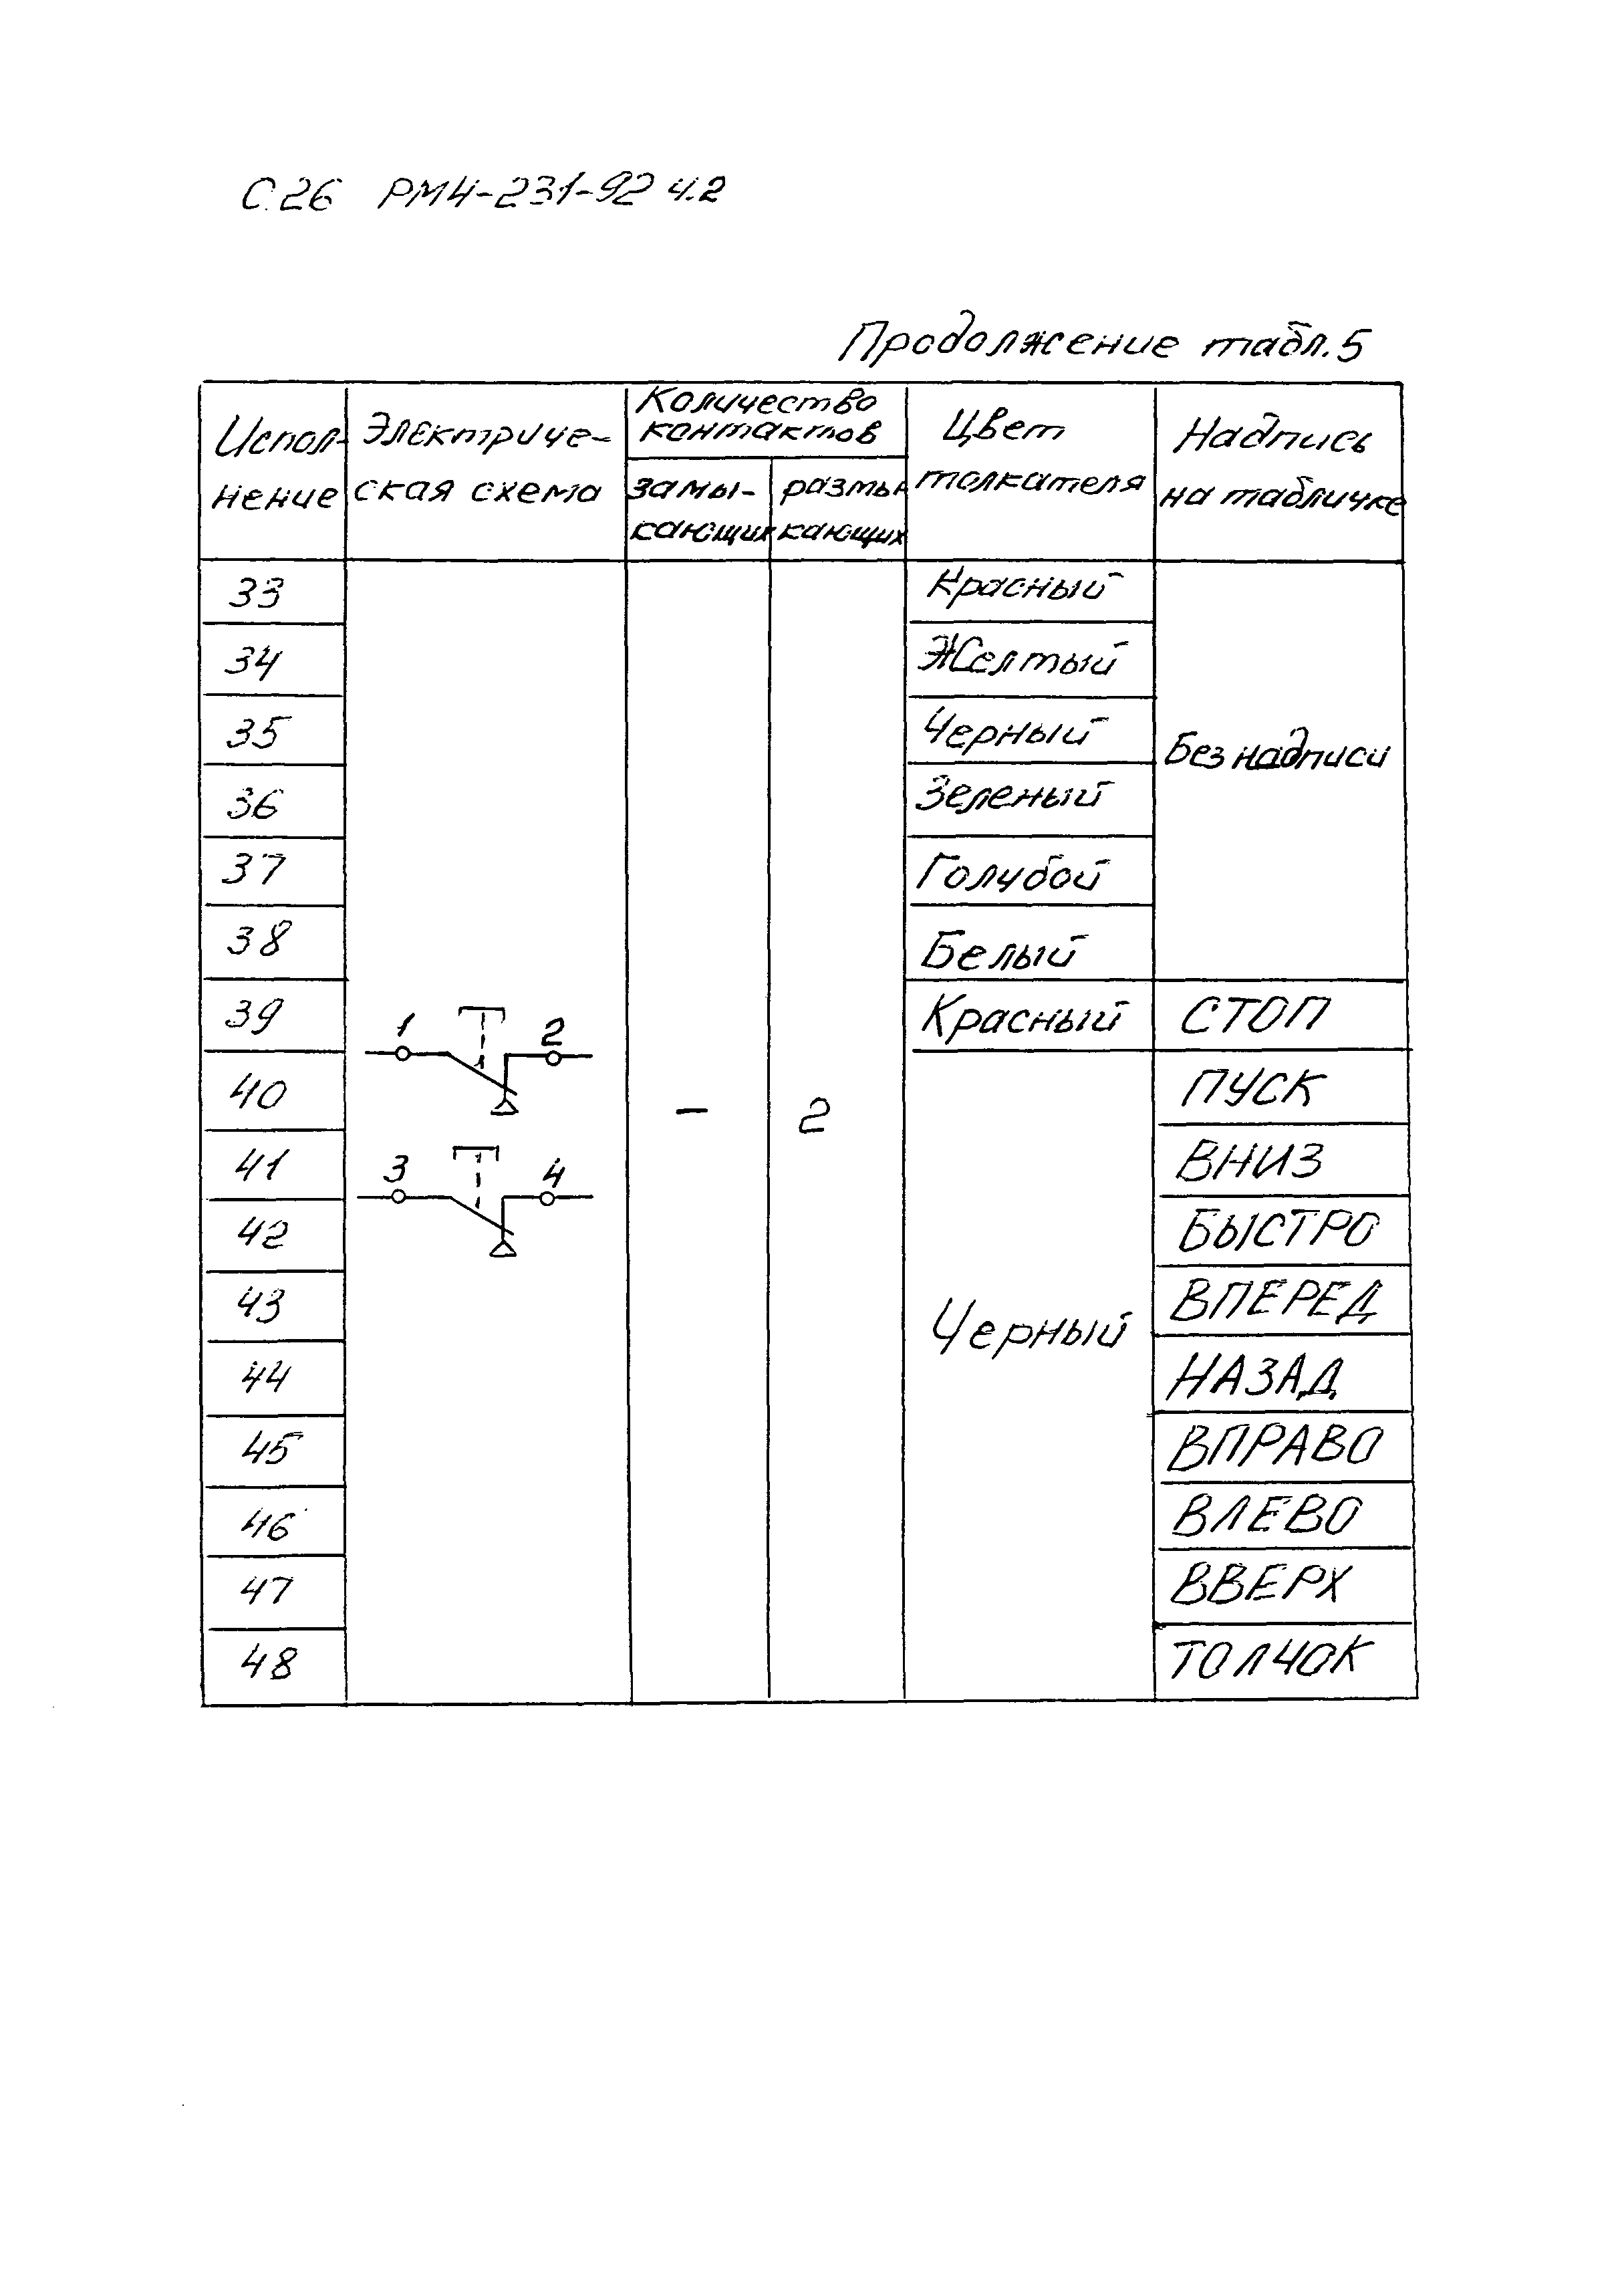 С.26 РМ4-231-92 ч.2
Продолжение табл.5
Испол-
нение
Электриче-
ская схема
Количество
контактов
замы-
кающих
размы-
кающих
Цвет
толкателя
Надпись
на табличке
33
Красный
34
Желтый
35
Черный
Без надписи
36
Зеленый
37
Голубой
38
Белый
39
Красный
СТОП
1
2
40
–
2
ПУСК
41
3
4
ВНИЗ
42
БЫСТРО
43
Черный
ВПЕРЕД
44
НАЗАД
45
ВПРАВО
46
ВЛЕВО
47
ВВЕРХ
48
ТОЛЧОК